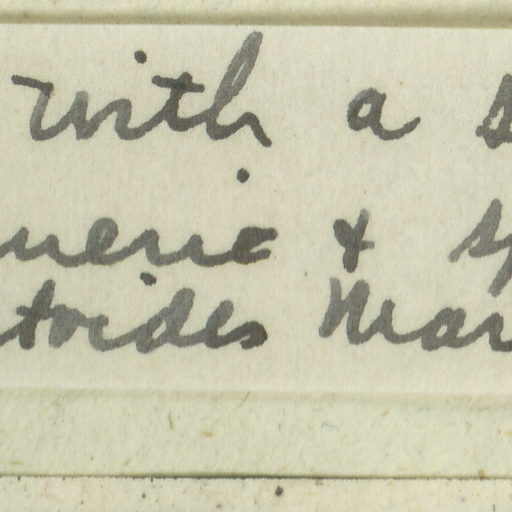 with a
neric & sp
toides Mar